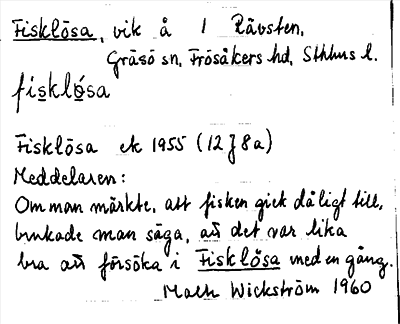 Fisklösa, vik å 1 Rävsten,
Gräsö sn, Frösåkers hd, Sthlms l.
fisklósa
Fisklösa ek 1955 (12J 8a)
Meddelaren:
Om man märkte, att fisken gick dåligt till,
brukade man säga, att det var lika
bra att försöka i Fisklösa med en gång.
Wickström 1960